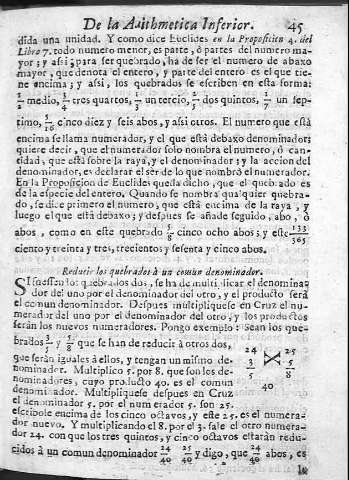 De la Arithmetica Inferior. 45
dida una unidad. Y como dice Euclides en la Proposicion 4. del
Libro 7. todo numero menor, es parte, ò partes del numero ma-
yor; y assi, para ser quebrado, ha de ser el numero de abaxo
mayor, que denota el entero, y parte del entero es el que tie-
ne encima; y assi, los quebrados se escriben en esta forma:
1/2 medio, 3/4 tres quartos, 1/3 un tercio, 2/5 dos quintos, 1/7 un sep-
timo, 5/16 cinco diez y seis abos, y assi otros. El numero que està
encima se llama numerador, y el que està debaxo denominador;
quiere decir, que el numerador solo nombra el numero, ò can-
tidad, que està sobre la raya, y el denominador; y la accion del
denominador, es declarar el ser de lo que nombrò el numerador.
En la Proposicion de Euclides queda dicho, que el quebrado es
de la especie del entero. Quando se nombra qualquier quebra-
do, se dice primero el numero, que està encima de la raya, y
luego el que està debaxo; y despues se añade seguido, abo, ò
abos, como en este quebrado 5/8 cinco ocho abos; y este 133/365
ciento y treinta y tres, trecientos y sesenta y cinco abos.
Reducir los quebrados à un comun denominador.
SI fuessen los quebrados dos, se ha de multiplicar el denomina-
dor del uno por el denominador del otro, y el producto serà
el comun denominador. Despues multipliquese en Cruz el nu-
merador del uno por el denominador del otro, y los productos
seràn los nuevos numeradores. Pongo exemplo: Sean los que-
brados 3/5 y 5/8 que se han de reducir à otros dos,
que seràn iguales à ellos, y tengan un mismo de-
nominador. Multiplico 5. por 8. que son les de-
nominadores, cuyo producto 40. es el comun
denominador. Multipliquese despues en Cruz
el denominador 5. por el numerador 5. son 25.
escribole encima de los cinco octavos, y este 25. es el numera-
dor nuevo. Y multiplicando el 8. por el 3. sale el otro numera-
dor 24. con que los tres quintos, y cinco octavos estaràn redu-
cidos à un comun denominador 24/40 25/40 y digo, que 24/40 abos, es
24 25
3 5
5 8
40